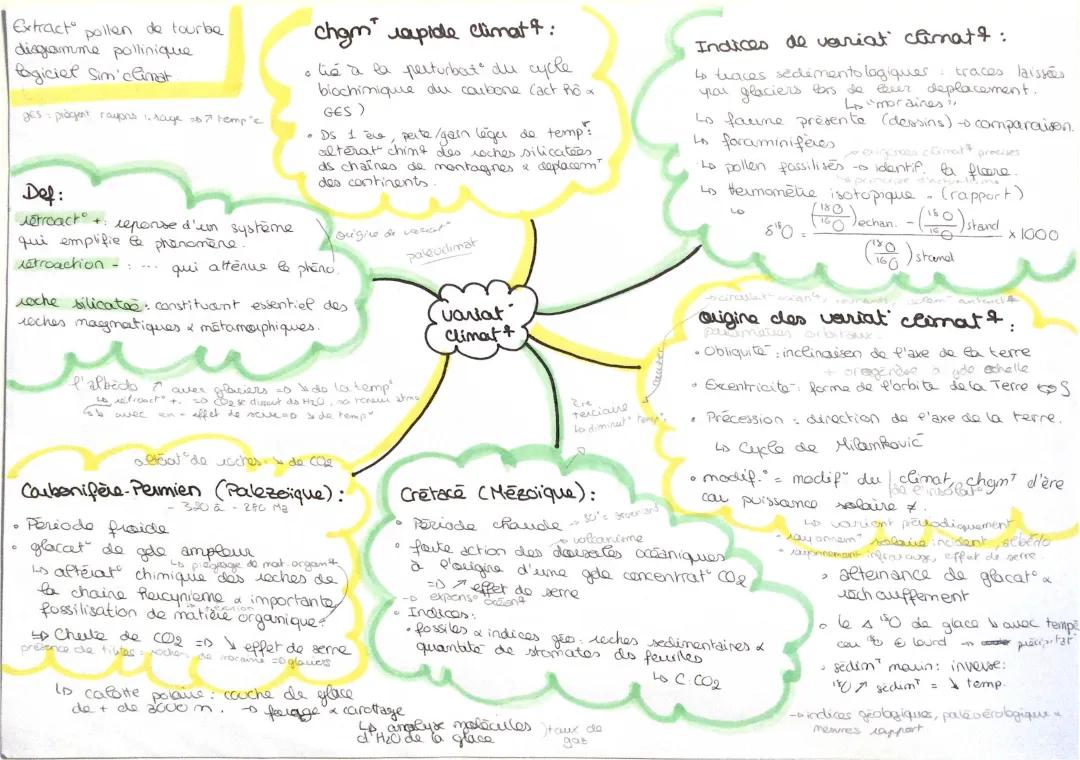 Extract° pollen de tourbe
diagramme pollinique
logiciel Sim'climat
ges : piègent rayons i.rouge => ↗ temp°e
chgmᵀ rapide climatq :
• lié à la perturbat° du cycle
biochimique du carbone (act Hô &
GES)
• Ds 1 ère, perte/gain léger de temp° :
altérat° chimq des roches silicatées
ds chaînes de montagnes & déplacemᵀ
des continents.
Indices de variat° climatq :
↳ traces sédimentologiques : traces laissées
par glaciers lors de leur déplacement.
↳ "moraines"
↳ faune présente (dessins) → comparaison.
↳ foraminifères
→ exigences climatq précises
↳ pollen fossilisés → identif. la flore.
↳ principe d'actualisme
↳ thermomètre isotopique = (rapport)
↳ δ¹⁸O = ((¹⁸O/¹⁶O) echan. - (¹⁸O/¹⁶O) stand) / (¹⁸O/¹⁶O) stand x 1000
Def :
rétroact° + : réponse d'un système
qui emplifie le phénomène.
rétroaction - : ... qui atténue le phéno.
roche silicatée : constituant essentiel des
roches magmatiques & métamorphiques.
origine de variat°
paléoclimat
variat°
climatq
l'albédo ↗ avec glaciers => ↘ de la temp°
↳ rétroact° +. => CO2 se dissout ds H2O, retenu atmo
↳ avec en - effet de serre => ↘ de temp°
origine des variat° climatq :
paramètres orbitaux.
• Obliquité : inclinaison de l'axe de la terre
+ orogenèse à gde échelle
• Excentricité : forme de l'orbite de la Terre
• Précession : direction de l'axe de la terre.
↳ Cycle de Milankovič
• modif.° = modif° du climat, chgmᵀ d'ère
de l'insolat°
car puissance solaire ≠.
↳ varient périodiquement
- rayonnemᵀ solaire incident, albédo
- rayonnement infrarouge, effet de serre.
> alternance de glacat° &
réchauffement
ère
tertiaire
↳ diminut° temp°
altérat° de roches ↘ de CO2
Carbonifère-Permien (Palézoïque) :
- 320 à - 280 Ma
• Période froide
• glacat° de gde ampleur
↳ piégeage de mat. organiq
↳ altérat° chimique des roches de
la chaîne hercynienne & importante
fossilisation de matière organique.
↳ Chute de CO2 => ↘ effet de serre
présence de tillites = roches de moraine => glaciers
↳ calotte polaire : couche de glace
de + de 3000 m. → forage & carottage
↳ analyse molécules
d'H2O de la glace
) taux de
gaz
Crétacé (Mézoïque) :
• Période chaude
→ volcanisme
• forte action des dorsales océaniques
à l'origine d'une gde concentrat° CO2
=> ↗ effet de serre
→ expans° océanq
• Indices :
• fossiles & indices géo : roches sédimentaires &
quantité de stomates ds feuilles
↳ C. CO2
• le Δ ¹⁸O de glace ↘ avec temp°
car ¹⁸O e lourd → précipitat°
• sédimᵀ marin : inverse :
¹⁸O ↗ sédimᵀ = ↘ temp.
→ indices géologiques, paléoécologique &
mesures rapport